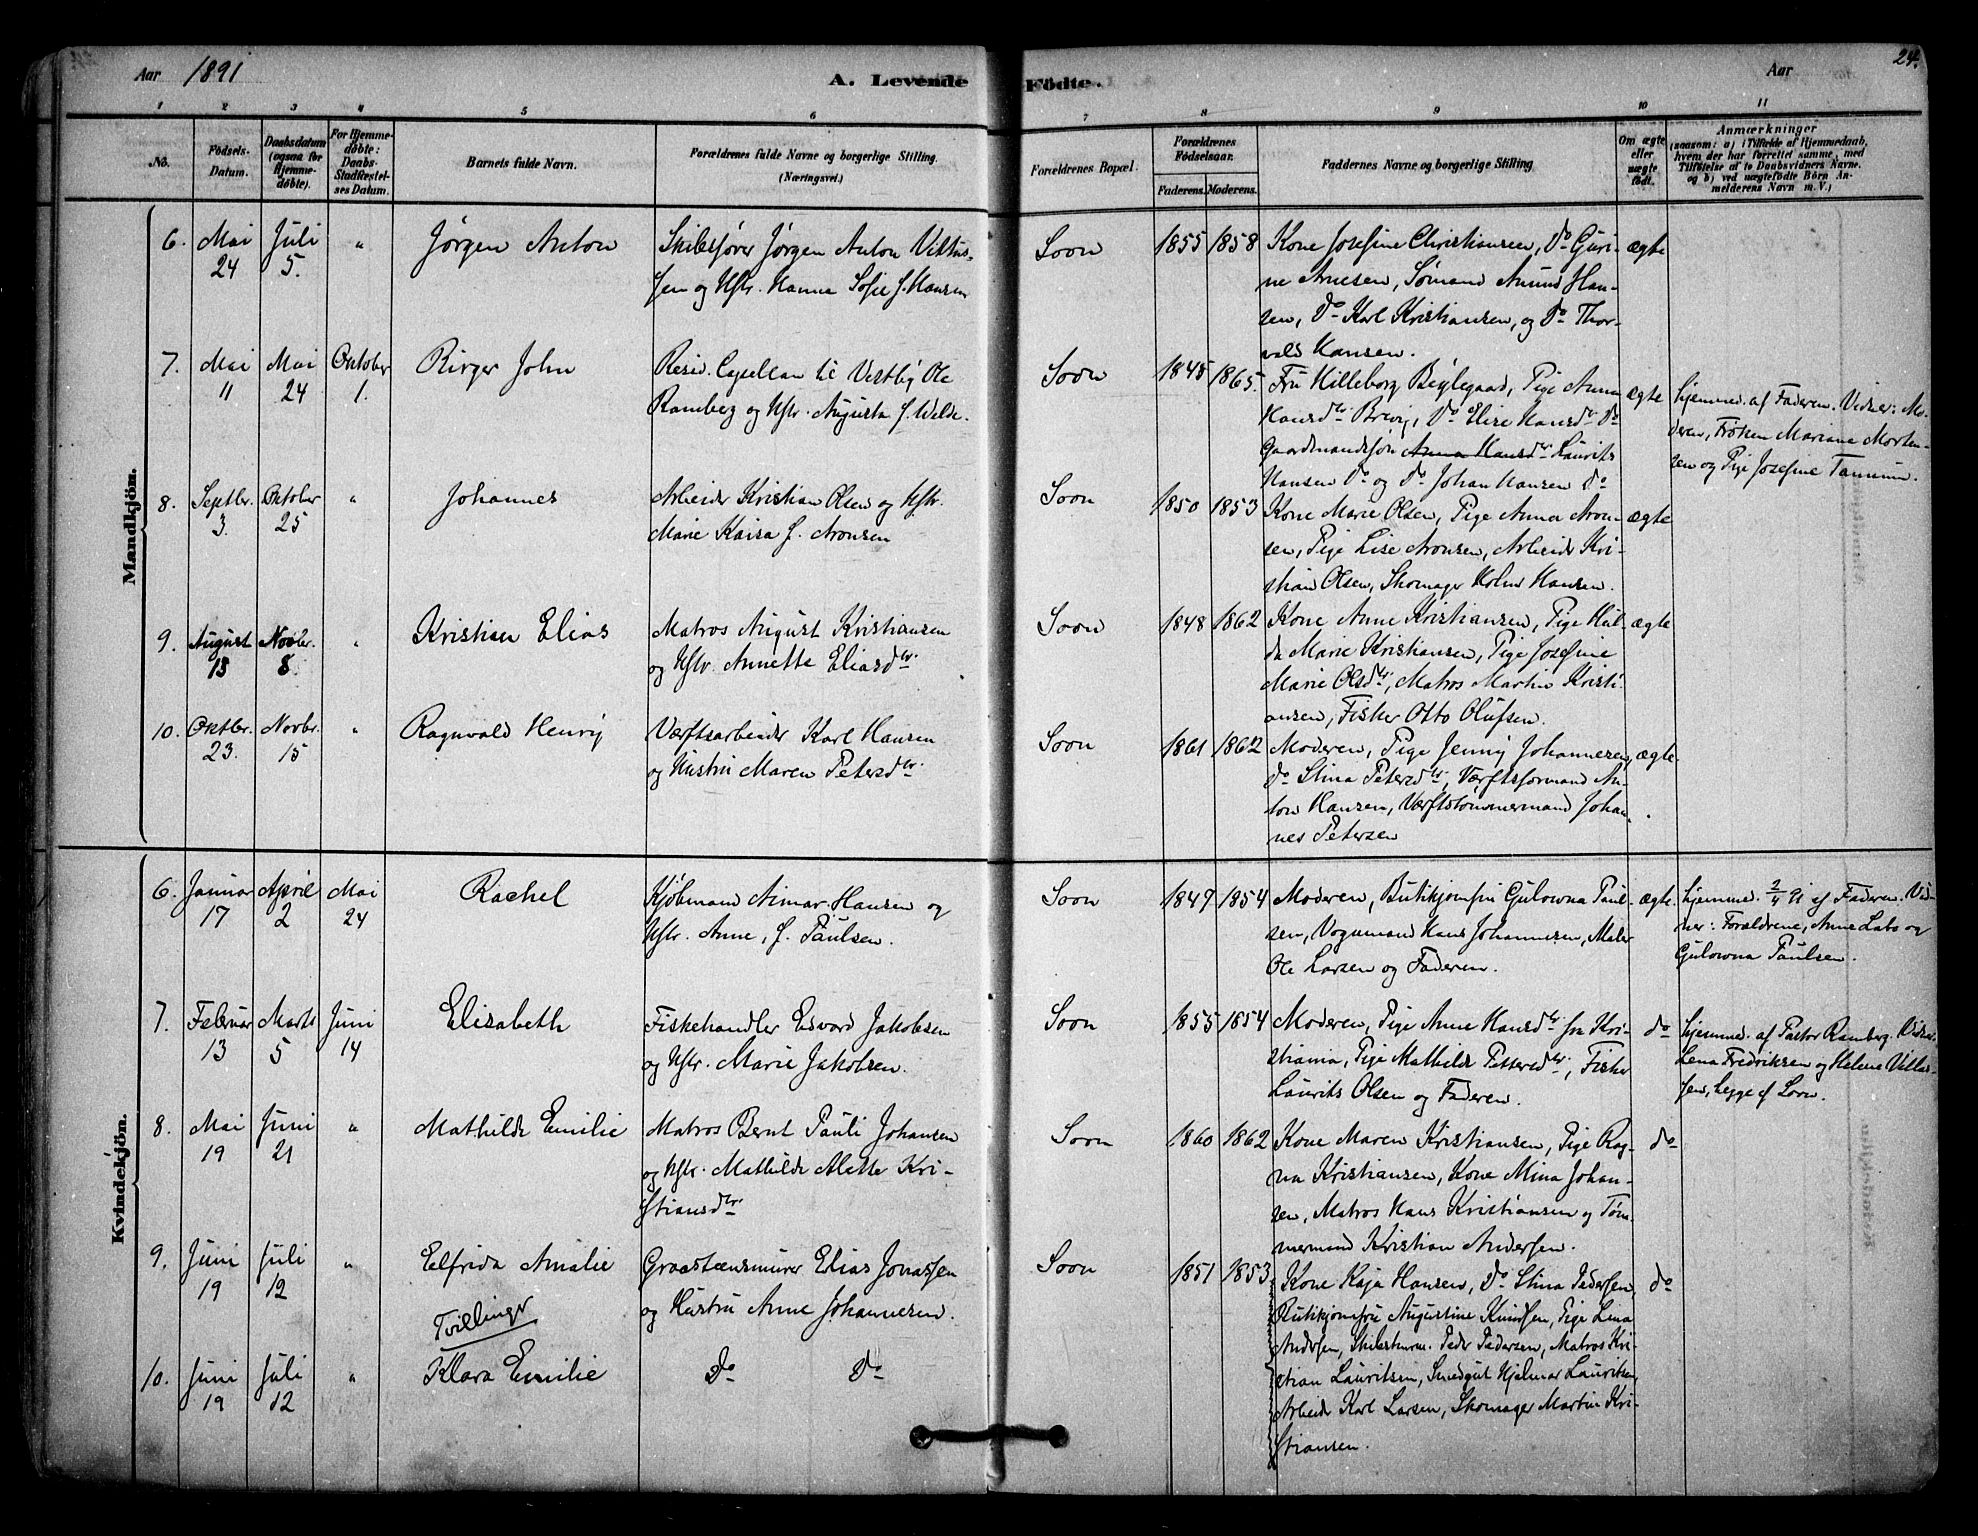 Aar 1891
A. Levende
Födte.
Aar
24.
1 2 3 4 5 6 7 8 9 10 11
No.
Födsels-
Datum.
Daabsdatum
(ogsaa for
Hjemme-
döbte).
For Hjemme-
döbte:
Daabs-
Stadfæstel-
ses Datum.
Barnets fulde Navn.
Forældrenes fulde Navne og borgerlige Stilling.
(Næringsvei.)
Forældrenes Bopæl.
Forældrenes
Födselsaar.
Faderens. Moderens.
Faddernes Navne og borgerlige Stilling
Om ægte
eller
uægte
födt.
Anmærkninger
(saasom: a) i Tilfælde af Hjemmedaab,
hvem der har forrettet samme, med
Tilföielse af to Daabsvidners Navne.
og b) ved uægtefödte Börn An-
melderens Navn m. V.)
Mandkjön.
6. Mai 24 Juli 5. " Jørgen Anton
Skibsfører Jørgen Anton Viktus-
sen og Hstr. Hanna Sofie f. Hansen
Soon 1855 1858
Kone Josefine Christiansen, Do Guri-
ne Arnesen, Sømand Amund Han-
sen, Do Karl Kristiansen, og Do Thor-
vald Hansen.
ægte
7. Mai 11 Mai 24 Oktober 1. Birger John
Resid. Capellan til Vestby Ole
Ramberg og Hstr. Augusta f. Welde.
Soon 1845 1865.
Fru Hilleborg Bøylegaard, Pige Anna
Hansdtr Brevig, Do Elise Hansdtr Do
Gaardmandssøn Anna Hansdtr Laurits
Hansen Do og Do Johan Hansen Do
ægte
hjemmed. af Faderen. Vidner: Mo-
deren, Frøken Mariane Morten-
sen og Pige Josefine Tamum.
8. Septbr. 3. Oktober 25 " Johannes
Arbeider Kristian Olsen og Hstr.
Marie Kaisa f. Aronsen
Soon 1850 1853
Kone Marie Olsen, Pige Anna Aron-
sen, Pige Lise Aronsen, Arbeider Kri-
stian Olsen, Skomager Holm Hansen.
ægte
9. August 15 Novbr. 8. " Kristian Elias
Matros August Kristiansen
og Hstr. Annette Eliasdtr.
Soon 1848 1862
Kone Anne Kristiansen, Pige Hul-
da Marie Kristiansen, Pige Josefine
Marie Olsdtr, Matros Martin Kristi-
ansen, Fisker Otto Olufsen.
ægte
10. Oktbr. 23. Novbr. 15 " Ragnvald Henry
Værftsarbeider Karl Hansen
og Hustru Maren Petersdtr.
Soon 1861 1862
Moderen, Pige Jenny Johannesen,
Do Stina Petersdtr, Værftsformand An-
ton Hansen, Værftstømmermand Johan-
nes Petersen
ægte.
Kvindekjön.
6. Januar 17 April 2 Mai 24 Rachel
Kjøbmand Aimar Hansen og
Hstr. Anne, f. Paulsen.
Soon 1847 1854
Moderen, Butikjomfru Gulowna Paul-
sen, Vognmand Hans Johannesen, Maler
Ole Larsen og Faderen.
ægte.
hjemmed. 2/4 91 af Faderen. Vid-
ner: Forældrene, Anne Labo og
Gulowna Paulsen.
7. Februar 13 Marts 5 Juni 14 Elisabeth
Fiskehandler Edvard Jakobsen
og Hstr. Marie Jakobsen.
Soon 1855 1854
Moderen, Pige Anne Hansdtr fra Kri-
stiania, Pige Mathilde Pettersdtr, Fisker
Laurits Olsen og Faderen.
do
hjemmed. af Pastor Ramberg. Vidner,
Lena Fredriksen og Helene Villas-
sen, begge af Soon.
8. Mai 19 Juni 21 " Mathilde Emilie
Matros Bernt Pauli Johansen
og Hstr. Mathilde Alette Kri-
stiansdtr
Soon 1860 1862
Kone Maren Kristiansen, Pige Rag-
na Kristiansen, Kone Mina Johan-
sen, Matros Hans Kristiansen og Tøm-
mermand Kristian Andersen.
do
9. Juni 19 Juli 12 " Elfrida Amalie
Tvillinger
Graastensmurer Elias Jonassen
og Hustru Anne Johannesen.
Soon 1851 1853
Kone Kaja Hansen, Do Stina Pedersen,
Butikjomfru Augustine Knudsen, Pige Lina
Andersen, Skibstømrm. Peder Pedersen, Matros Kri-
stian Lauritsen, Smedgut Hjalmar Lauritsen,
Arbeider Karl Larsen, Skomager Martin Kri-
stiansen.
do
10. Juni 19 Juli 12 " Klara Emilie
Do Do